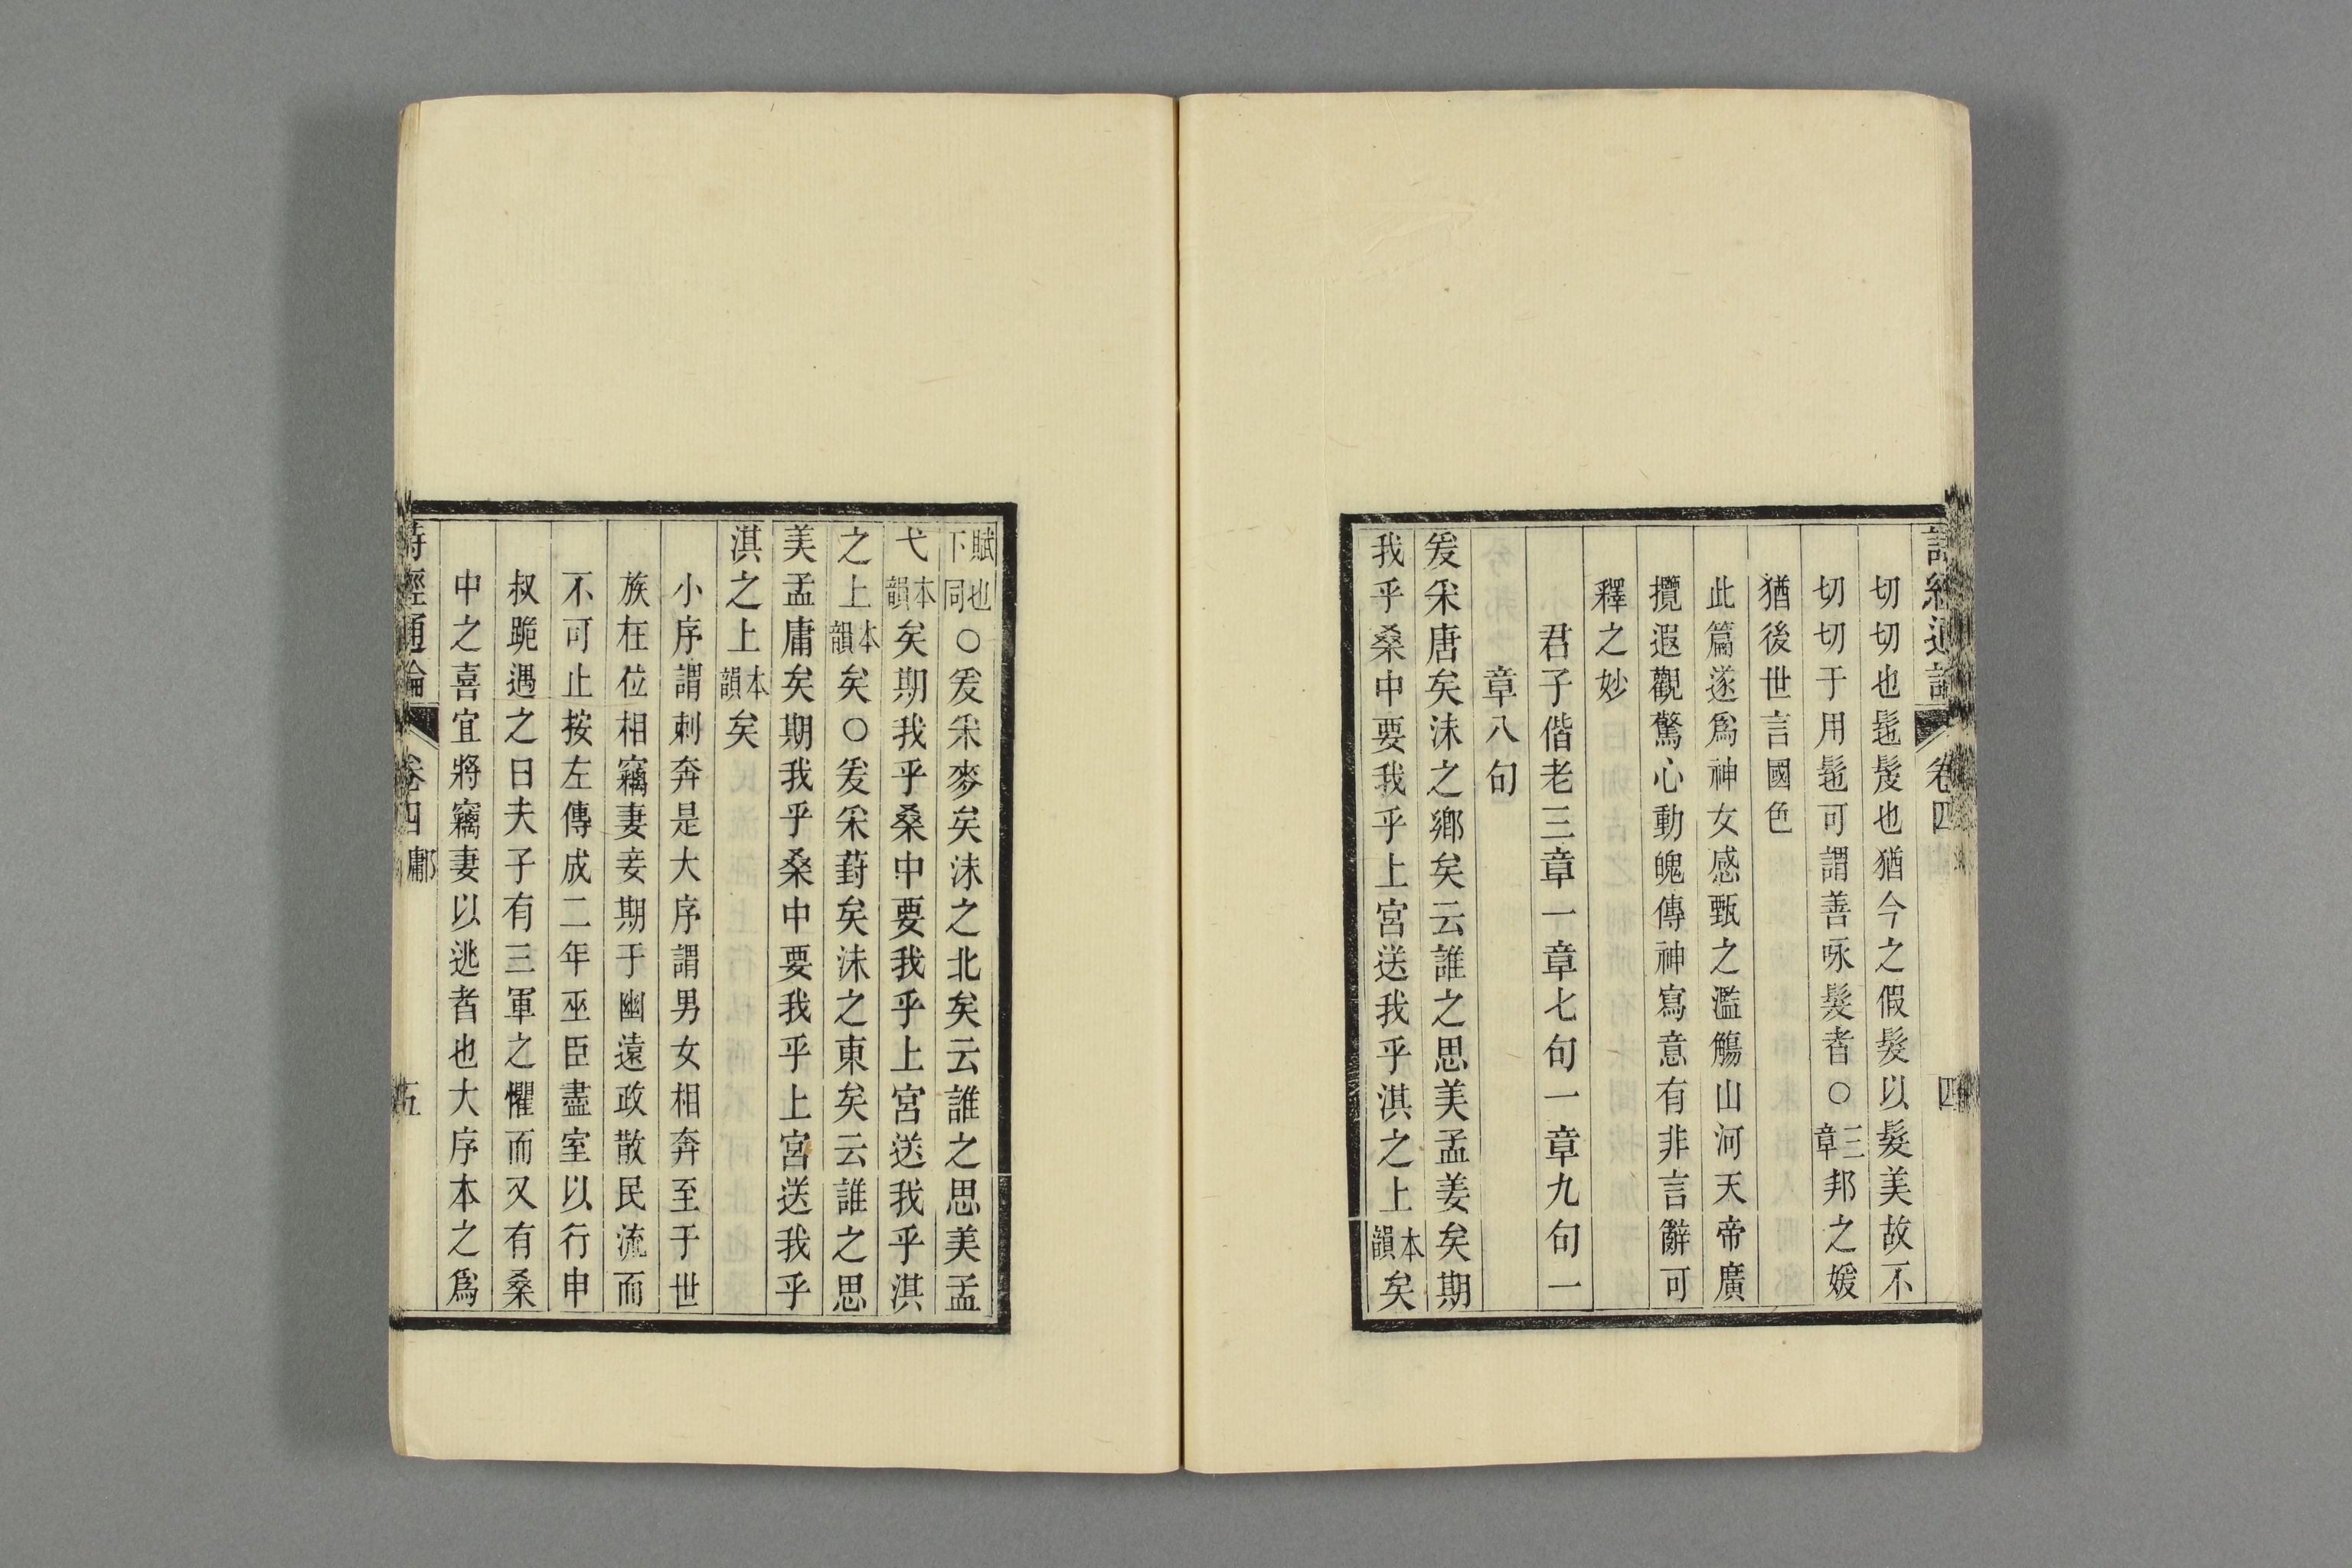 詩經通論 卷四 四
切切也髢髲也猶今之假髮以髮美故不
切切于用髢可謂善咏髮者○三章邦之媛
猶後世言國色
此篇遂爲神女感甄之濫觴山河天帝廣
攬遐觀驚心動魄傳神寫意有非言辭可
釋之妙
君子偕老三章一章七句一章九句一
章八句
爰采唐矣沬之鄉矣云誰之思美孟姜矣期
我乎桑中要我乎上宮送我乎淇之上本韻矣
賦也下同○爰采麥矣沬之北矣云誰之思美孟
弋本韻矣期我乎桑中要我乎上宮送我乎淇
之上本韻矣○爰采葑矣沬之東矣云誰之思
美孟庸矣期我乎桑中要我乎上宮送我乎
淇之上本韻矣
小序謂刺奔是大序謂男女相奔至于世
族在位相竊妻妾期于幽遠政散民流而
不可止按左傳成二年巫臣盡室以行申
叔跪遇之曰夫子有三軍之懼而又有桑
中之喜宜將竊妻以逃者也大序本之爲
詩經通論 卷四 鄘 五